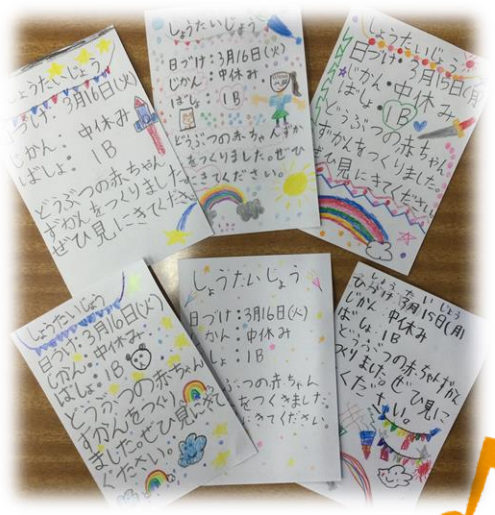 しょうたいじょう
日づけ:3月16日(火)
じかん:中休み
ばしょ:1B
どうぶつの赤ちゃん
ずかんをつくりました。
ぜひ見にきてくださ
しょうたいじょう
日づけ:3月16日(火)
じかん:中休み
ばしょ 1B
どうぶつの赤ちゃんずか
をつくりました。ぜひ
にきてください。
しょうたいじょう
日づけ:3月15日(月)
じかん:中休み
ばしょ:1B
どうぶつの赤ちゃん
ずかんをつくりました。
ぜひ見にきてください
しょうたいじょう
日づけ:3月16日(火)
じかん:中休み
ばしょ:1B
どうぶつの赤ちゃん
ずかんをつくり
ました。ぜひ見にきて
ください。
しょうたいじょう
日づけ:3月16日(火)
じかん:中休み
しょ:1B
ぶつの赤ちゃん
をつくきました
にきてください。
しょうたいじょう
ひづけ 3月15日(月)
じかん 中休み
ばしょ 1B
どうぶつの赤ちゃんずかん
くりました。ぜひ見に
ください。